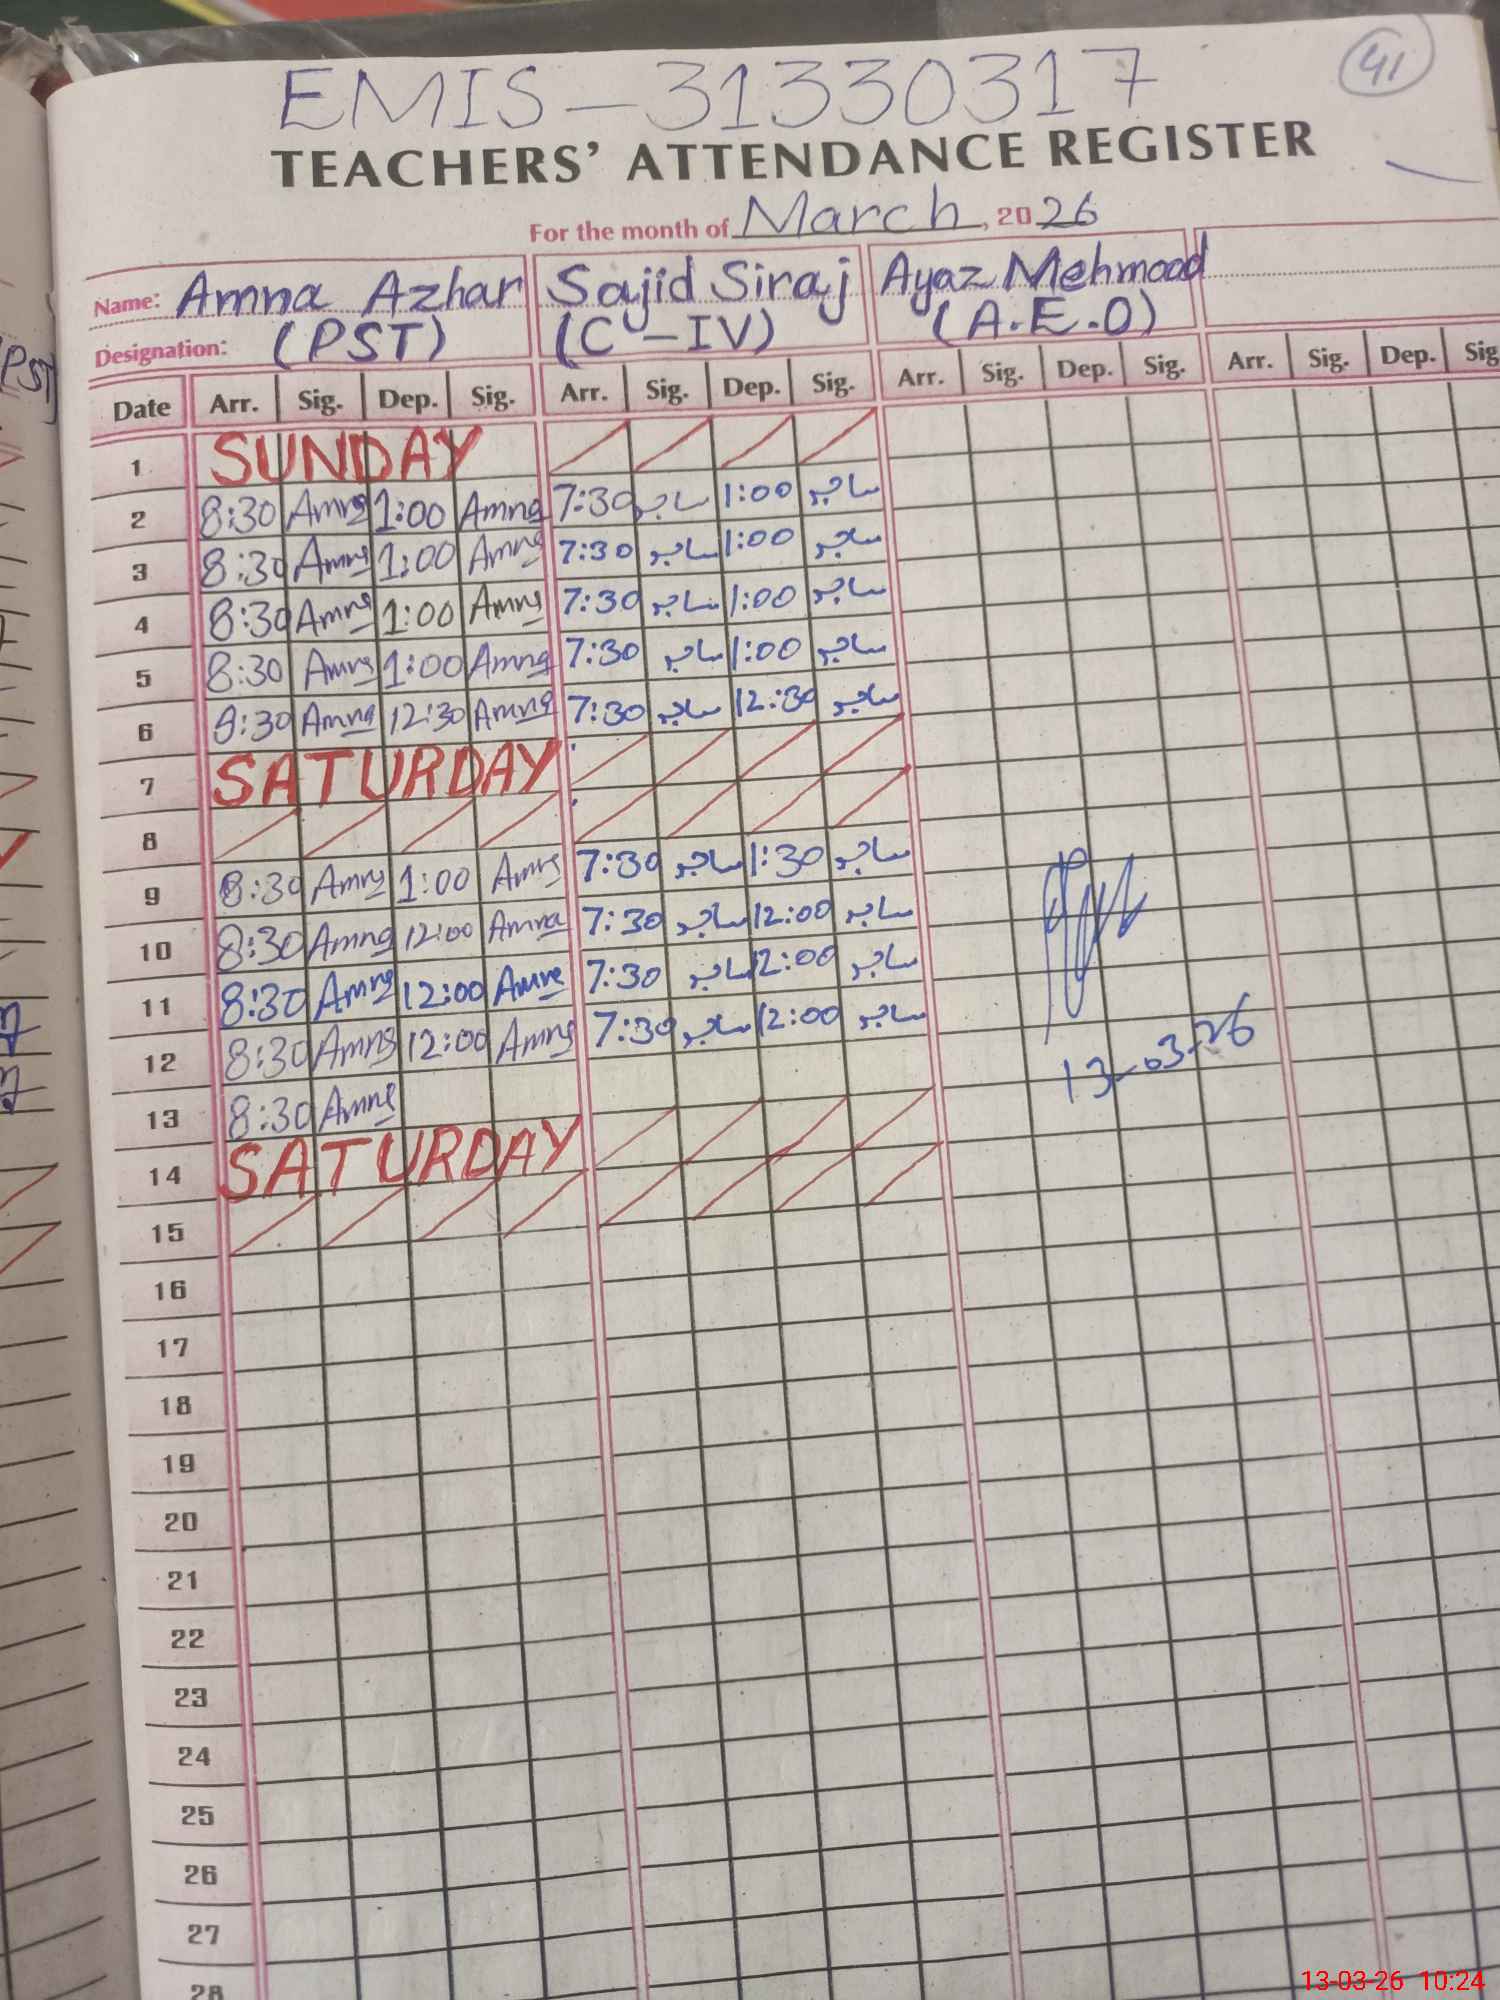 41
EMIS-31330317
TEACHERS' ATTENDANCE REGISTER
For the month of March, 2026
Name: Amna Azhar Sajid Siraj Ayaz Mehmood
Designation: (PST) (C-IV) (A.E.O)
Date Arr. Sig. Dep. Sig. Arr. Sig. Dep. Sig. Arr. Sig. Dep. Sig. Arr. Sig. Dep. Sig
1 SUNDAY
2 8:30 Amna 1:00 Amna 7:30 ساجد 1:00 ساجد
3 8:30 Amna 1:00 Amna 7:30 ساجد 1:00 ساجد
4 8:30 Amna 1:00 Amna 7:30 ساجد 1:00 ساجد
5 8:30 Amna 1:00 Amna 7:30 ساجد 1:00 ساجد
6 8:30 Amna 12:30 Amna 7:30 ساجد 12:30 ساجد
7 SATURDAY
8
9 8:30 Amna 1:00 Amna 7:30 ساجد 1:30 ساجد
10 8:30 Amna 12:00 Amna 7:30 ساجد 12:00 ساجد
11 8:30 Amna 12:00 Amna 7:30 ساجد 12:00 ساجد
12 8:30 Amna 12:00 Amna 7:30 ساجد 12:00 ساجد
13-03-26
13 8:30 Amna
14 SATURDAY
15
16
17
18
19
20
21
22
23
24
25
26
27
28
13-03-26 10:24